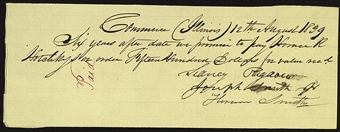 Commerce (Illinois) 12th August 1839
Six years after date we promise to pay Horace R
Hotchkiss or order Fifteen Hundred Dollars for value recd.
Sidney Rigdon
Joseph Smith Jr
Hyrum Smith
Paid